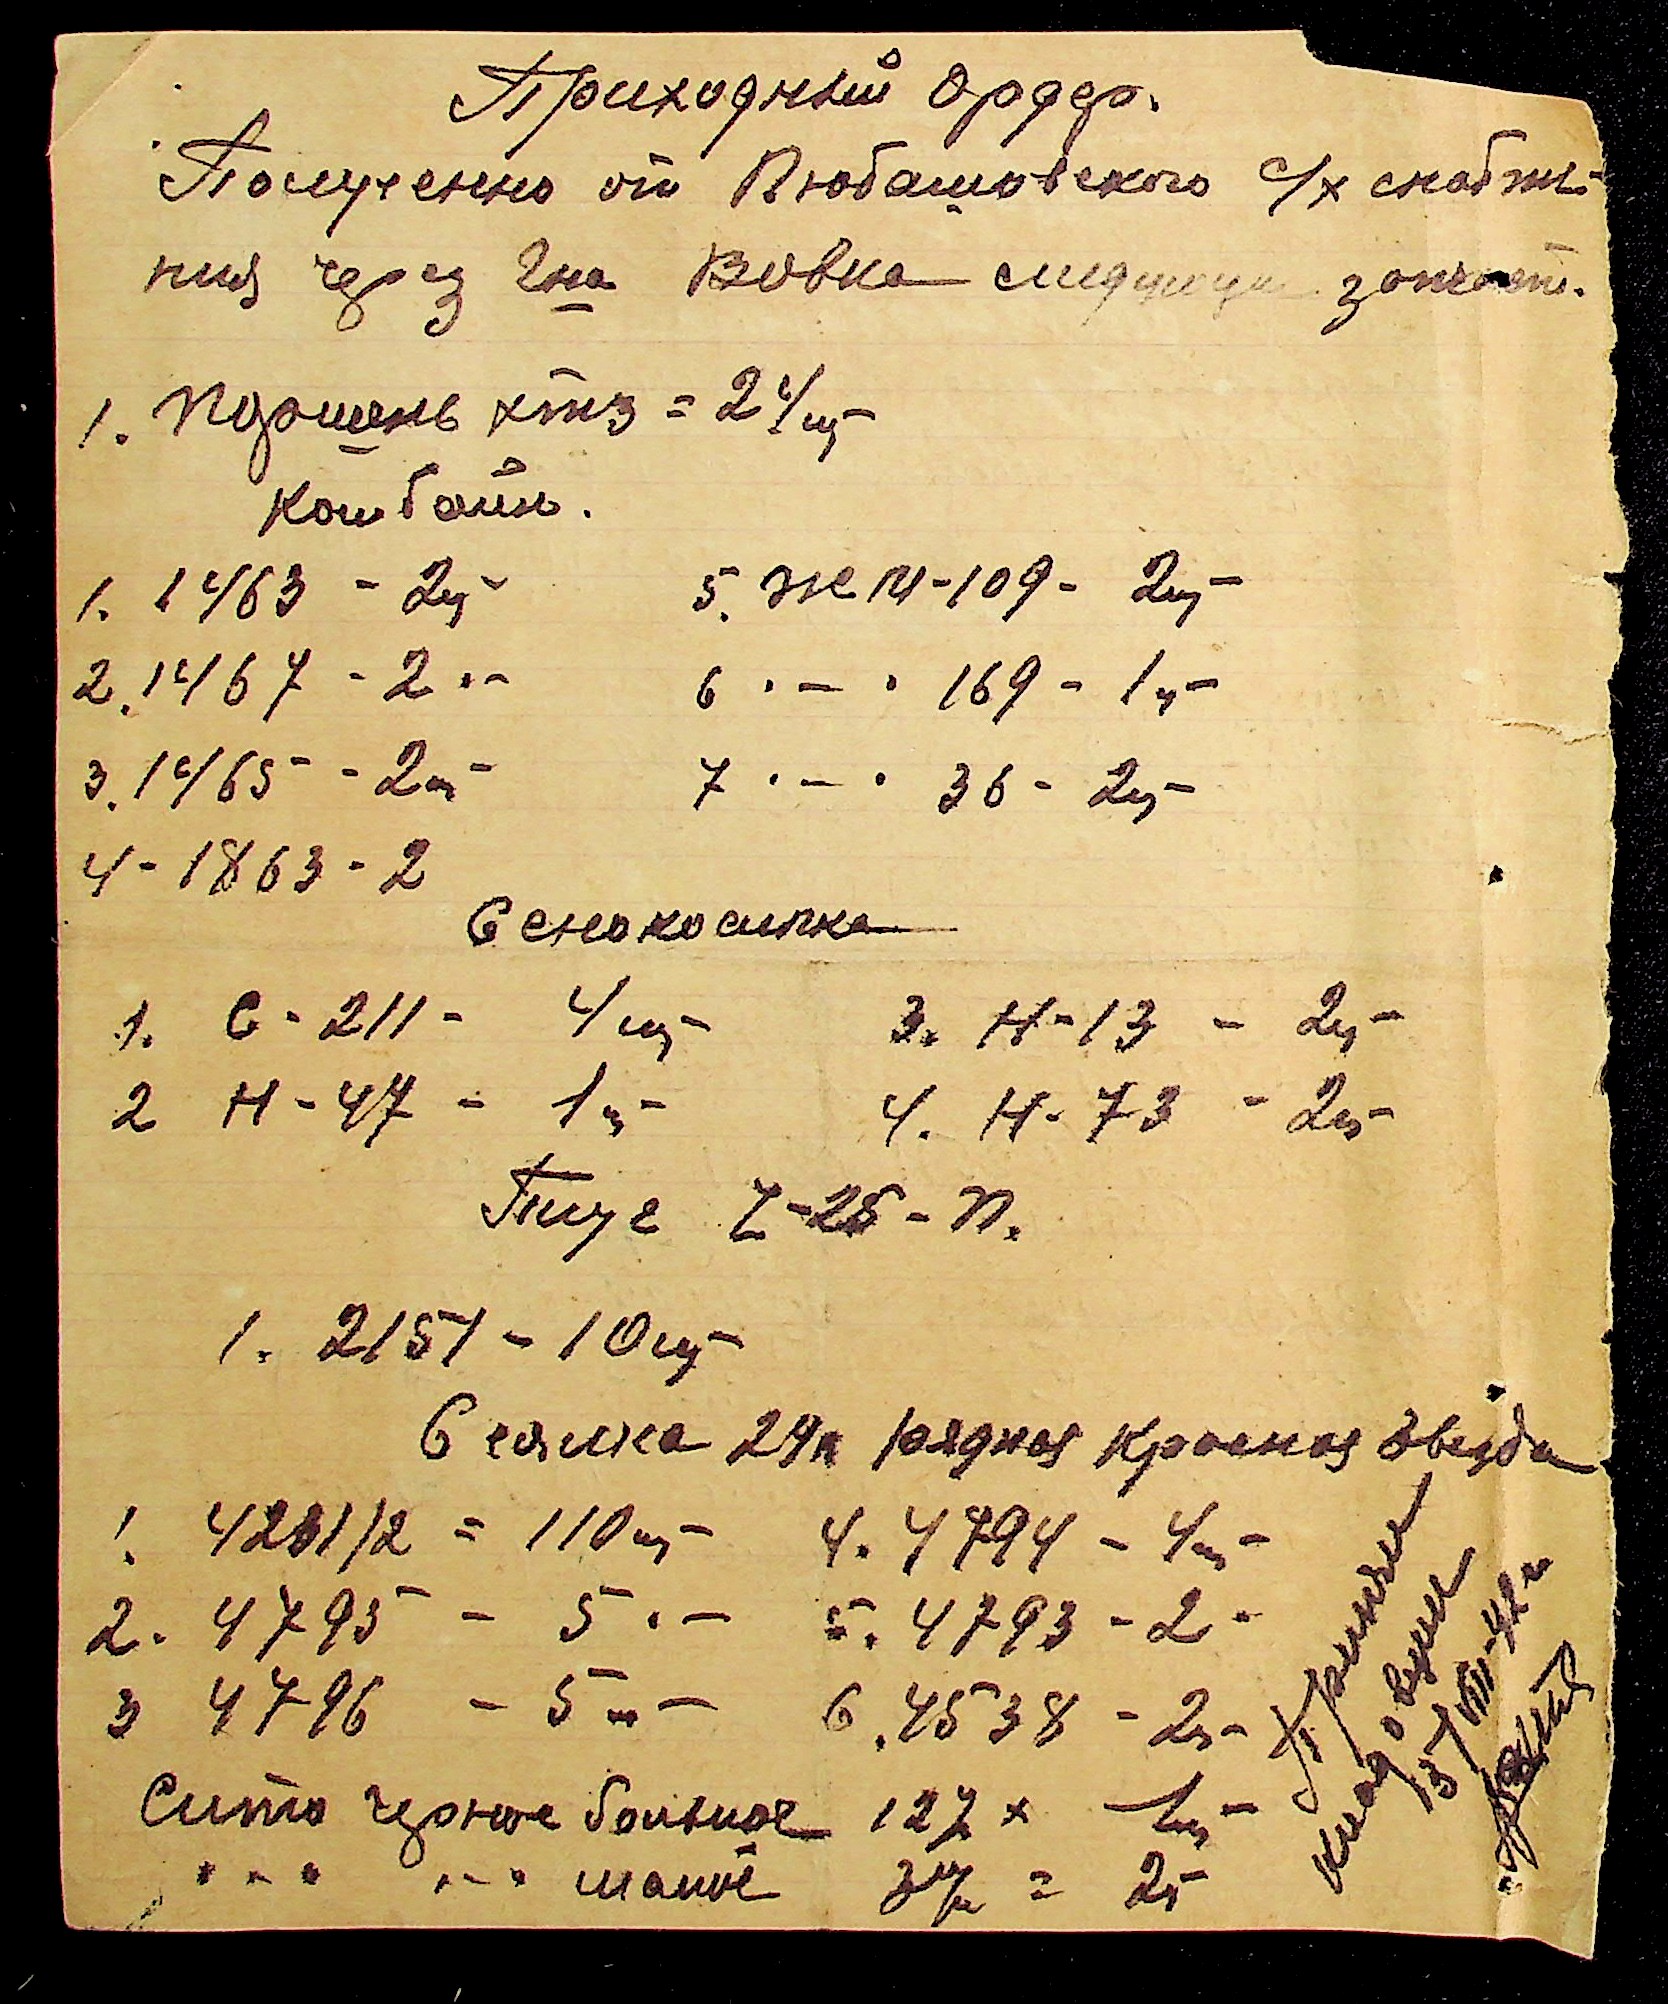 Приходный Ордер.
Полученно от Любашовского с/х снабже-
ния через г-на Вовка следующи запчаст.
1. Поршень ХТЗ = 2 шт
Комбайн.
1. 1463 - 2шт 5. ЖМ-109 - 2шт
2. 1467 - 2 ·- 6 ·-· 169 - 1шт
3. 1465 - 2шт 7 ·-· 36 - 2шт
4 - 1863 - 2
Сенокосилка
1. С-211 - 4шт 3. Н-13 - 2шт
2 Н-47 - 1шт 4. Н-73 - 2шт
Плуг Z-25-П.
1. 2151 - 10шт
Сеялка 24х рядная Красная Звезда
1. 4231/2 = 110шт 4. 4794 - 4шт
2. 4795 - 5 ·- 5. 4793 - 2 ·
3 4796 - 5шт 6. 4538 - 2шт
Сито черное большое 127 х 1шт
·-· ·-· малое = 2шт
Принял
Кладовщик
15/VIII-42г